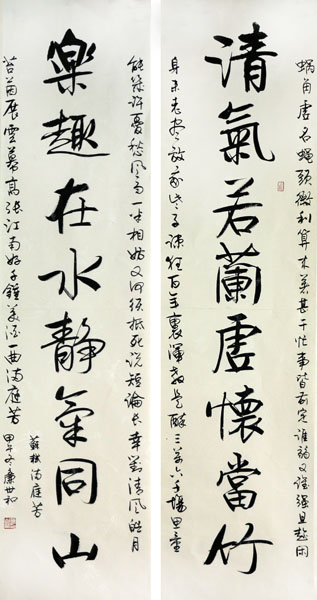 蝸角虛名蠅頭微利算来著甚干忙事皆前定誰弱又誰强且趁閑
清氣若蘭虛懷當竹
身未老盡放我些子疎狂百年裏渾教是醉三萬六千場思量
能幾許憂愁風雨一半相妨又何須抵死說短論長幸對清風皓月
樂趣在水靜氣同山
苔茵展雲幕高張江南好千鍾美酒一曲滿庭芳
蘇軾滿庭芳
甲午冬廉世和